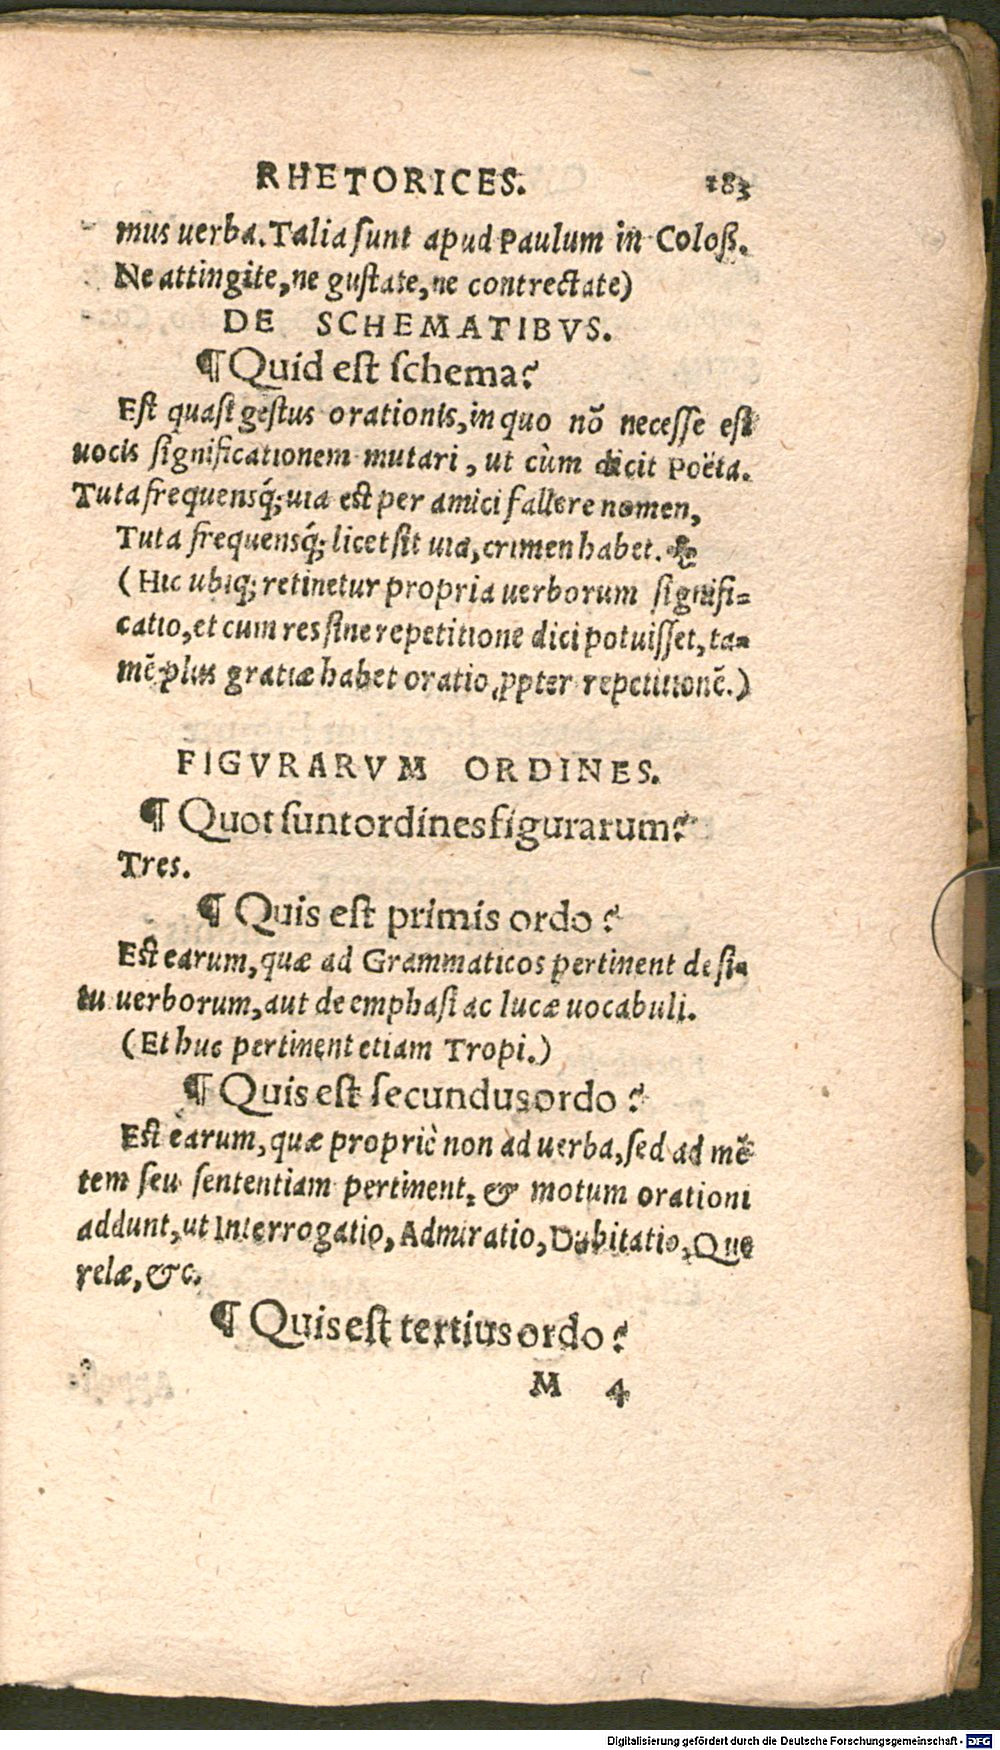 RHETORICES. 183
mus uerba. Talia sunt apud Paulum in Coloß.
Ne attingite, ne gustate, ne contrectate)
DE SCHEMATIBVS.
¶ Quid est schema?
Est quasi gestus orationis, in quo nõ necesse est
uocis significationem mutari, ut cùm dicit Poëta.
Tuta frequensq́; uia est per amici fallere nomen,
Tuta frequensq́; licet sit uia, crimen habet. ❧
(Hic ubiq; retinetur propria uerborum signifi=
catio, et cum res sine repetitione dici potuisset, ta=
mẽ plus gratiæ habet oratio ꝓpter repetitionẽ.)
FIGVRARVM ORDINES.
¶ Quot sunt ordines figurarum?
Tres.
¶ Quis est primis ordo?
Est earum, quæ ad Grammaticos pertinent de si=
tu uerborum, aut de emphasi ac lucæ uocabuli.
(Et huc pertinent etiam Tropi.)
¶ Quis est secundus ordo?
Est earum, quæ propriè non ad uerba, sed ad mẽ
tem seu sententiam pertinent, & motum orationi
addunt, ut Interrogatio, Admiratio, Dubitatio, Que
relæ, &c.
¶ Quis est tertius ordo?
M 4
Digitalisierung gefördert durch die Deutsche Forschungsgemeinschaft - DFG